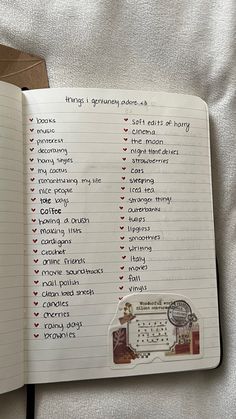 things i genuinely adore <3
books
music
pinterest
decorating
harry singles
my cactus
romanticising my life
nice people
tote bags
coffee
having a crush
making lists
cardigans
crochet
online friends
movie soundtracks
nail polish
clean bed sheets
candles
cherries
rainy days
brownies
soft edits of harry
cinema
the moon
night time drives
strawberries
cats
sleeping
iced tea
stranger things
outerbanks
tulips
lipgloss
smoothies
writing
italy
movies
fall
vinyls
Wonderful world